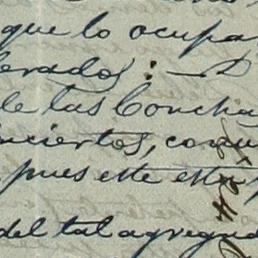 que lo ocupa
erados: A
de las Concha
nciertos, com
pues este
del tal agregad